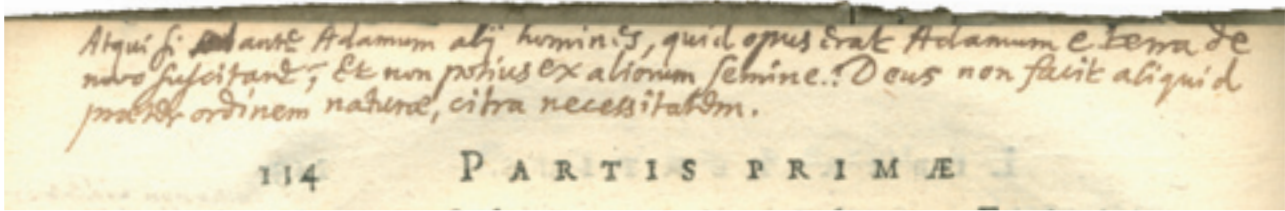 Atqui si ante Adamum alij homines, quid opus erat Adamum e terra de
novo suscitare; Et non potius ex aliorum semine.? Deus non facit aliquid
praeter ordinem naturae, citra necessitatem.
114 PARTIS PRIMÆ